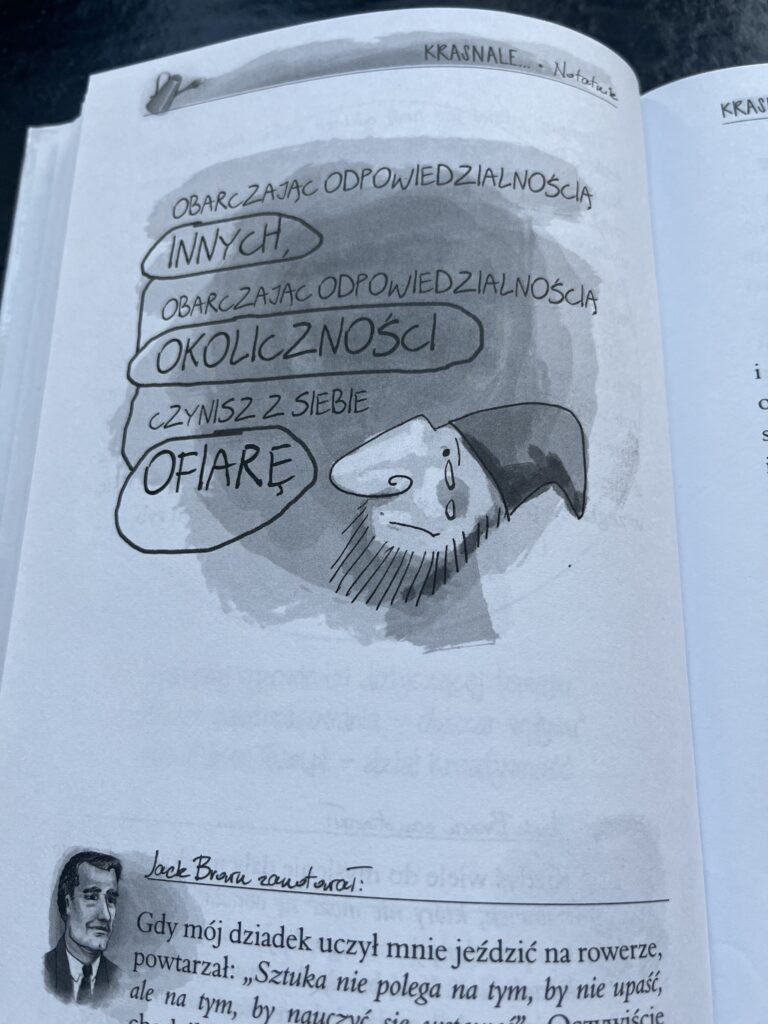 KRASNALE... • Notatnik
OBARCZAJĄC ODPOWIEDZIALNOŚCIĄ
INNYCH,
OBARCZAJĄC ODPOWIEDZIALNOŚCIĄ
OKOLICZNOŚCI
CZYNISZ Z SIEBIE
OFIARĘ
Jack Brown zanotował:
Gdy mój dziadek uczył mnie jeździć na rowerze,
powtarzał: „Sztuka nie polega na tym, by nie upaść,
ale na tym, by nauczyć się